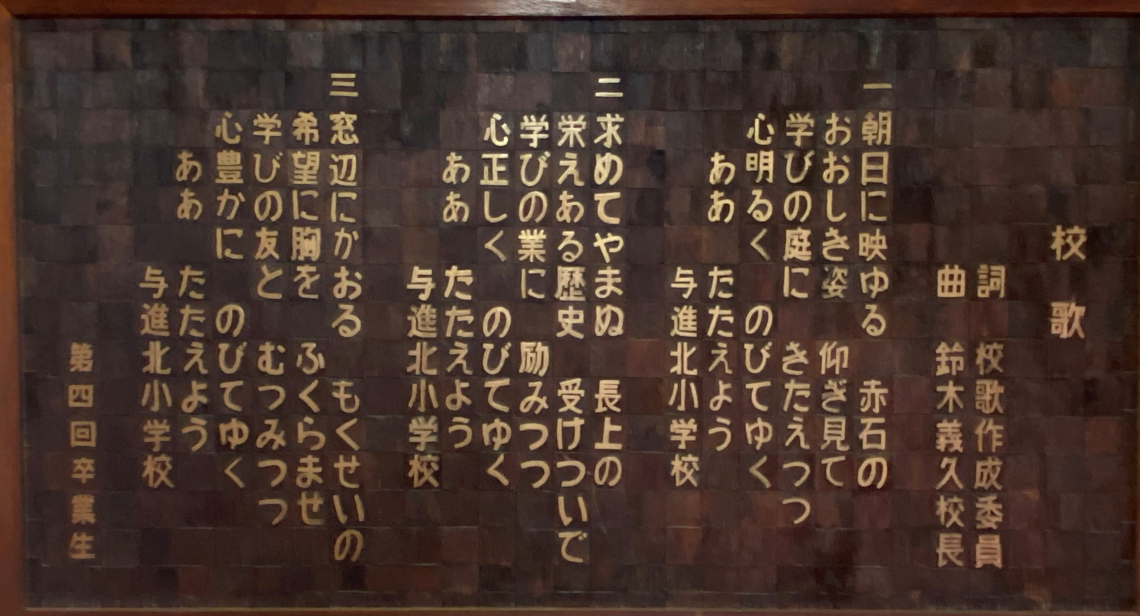 校歌
詞 校歌作成委員
曲 鈴木義久校長
一 朝日に映ゆる 赤石の
おおしき姿 仰ぎ見て
学びの庭に きたえつつ
心明るく のびてゆく
ああ たたえよう
与進北小学校
二 求めてやまぬ 長上の
栄えある歴史 受けついで
学びの業に 励みつつ
心正しく のびてゆく
ああ たたえよう
与進北小学校
三 窓辺にかおる もくせいの
希望に胸を ふくらませ
学びの友と むつみつつ
心豊かに のびてゆく
ああ たたえよう
与進北小学校
第四回卒業生